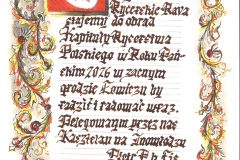 Rycerskie Rava
siajemy do obrad
Kapituły Rycerstwa
Polskiego w Roku Pań
skim 2026 w zacnym
grodzie Łowiczu by
radzić i radować wraz.
Delegowanym przez nas
Kasztelan na Inowłodzu
Piotr